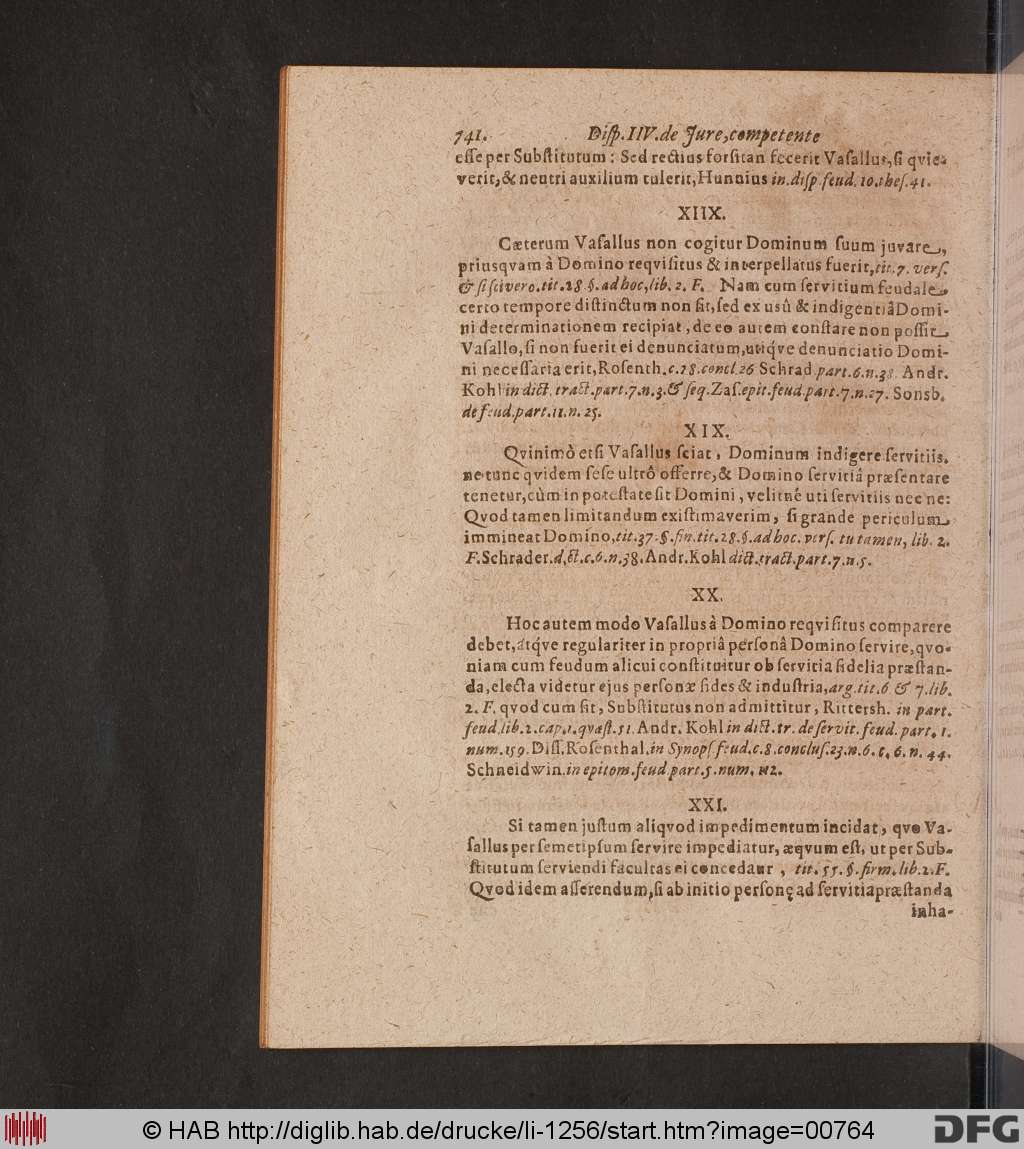 741. Diſp. IIV. de Jure, competente
eſſe per Subſtitutum: Sed rectius forſitan fecerit Vaſallus, ſi qvie-
verit, & neutri auxilium tulerit, Hunnius in. diſp. feud. 10. theſ. 41.
XIIX.
Cæterum Vaſallus non cogitur Dominum ſuum juvare,
priusqvam à Domino reqviſitus & interpellatus fuerit, tit. 7. verſ.
& ſi ſcivero. tit. 28 §. ad hoc, lib. 2. F. Nam cum ſervitium feudale
certo tempore diſtinctum non ſit, ſed ex uſû & indigentiâ Domi-
ni determinationem recipiat, de eo autem conſtare non poſſit
Vaſallo, ſi non fuerit ei denunciatum, utiq́ve denunciatio Domi-
ni neceſſaria erit, Roſenth. c. 28. concl. 26 Schrad. part. 6. n. 38. Andr.
Kohl in dict. tract. part. 7. n. 3. & ſeq. Zaſ. epit. feud. part. 7. n. 27. Sonsb.
de feud. part. 11. n. 25.
XIX.
Qvinimò etſi Vaſallus ſciat, Dominum indigere ſervitiis.
ne tunc qvidem ſeſe ultrô offerre, & Domino ſervitiâ præſentare
tenetur, cùm in poteſtate ſit Domini, velitnè uti ſervitiis nec ne:
Qvod tamen limitandum exiſtimaverim, ſi grande periculum
immineat Domino, tit. 37. §. fin. tit. 28. §. ad hoc. verſ. tu tamen, lib. 2.
F. Schrader. d. ct. c. 6. n. 38. Andr. Kohl dict. tract. part. 7. n. 5.
XX.
Hoc autem modo Vaſallus à Domino reqviſitus comparere
debet, atq́ve regulariter in propriâ perſonâ Domino ſervire, qvo-
niam cum feudum alicui conſtituitur ob ſervitia fidelia præſtan-
da, electa videtur ejus perſonæ fides & induſtria, arg. tit. 6 & 7. lib.
2. F. qvod cum ſit, Subſtitutus non admittitur, Rittersh. in part.
feud. lib. 2. cap. 1. qvæſt. 51. Andr. Kohl in dict. tr. de ſervit. feud. part. 1.
num. 159. Diſſ. Roſenthal. in Synopſ feud. c. 8. concluſ. 23. n. 6. c. 6. n. 44.
Schneidwin. in epitom. feud. part. 5. num. 112.
XXI.
Si tamen juſtum aliqvod impedimentum incidat, qvo Va-
ſallus per ſemetipſum ſervire impediatur, æqvum eſt, ut per Sub-
ſtitutum ſerviendi facultas ei concedaur, tit. 55. §. firm. lib. 2. F.
Qvod idem aſſerendum, ſi ab initio perſonę ad ſervitia præſtanda
inha-
© HAB http://diglib.hab.de/drucke/li-1256/start.htm?image=00764
DFG